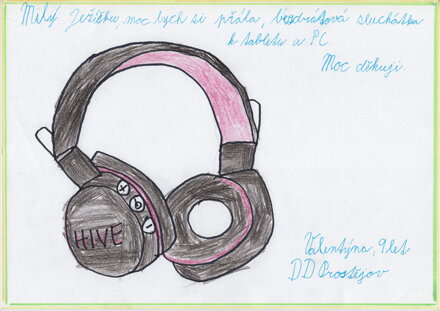 Milý Ježíšku, moc bych si přála, bezdrátová sluchátka
k tabletu a PC.
Moc děkuji.
HIVE
Valentýna, 9 let
DD Prostějov